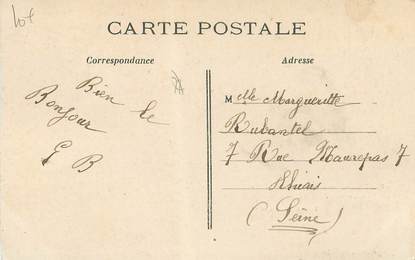 10f
CARTE POSTALE
Correspondance
Adresse
Bien le
Bonjour
G B
Melle Margueritte
Rubantel
7 Rue Maurepas 7
Thiais
(Seine)